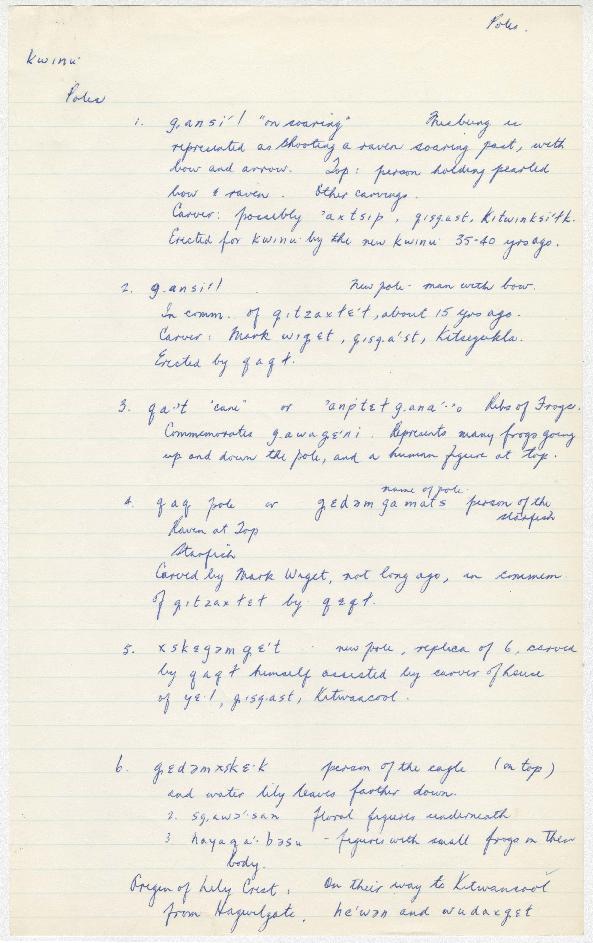 Poles.
Kwinu·
Poles
1. g.ansi'l "on soaring" is
represented as shooting a raven soaring past, with
bow and arrow. Top: person holding pearled
bow & raven. Other carvings.
Carver: possibly 'axtsip, gisgast, Kitwinksi'łk.
Erected for Kwinu· by the new Kwinu· 35-40 yrs ago.
2. g.ansi'l New pole - man with bow.
In comm. of gitzaxtɛ't, about 15 yrs ago.
Carver: Mark wigɛt, gisga'st, Kitsegukla.
Erected by qaqł.
3. qa·'t "cane" or 'anptɛł g.ana'··o Ribs of Frogs.
Commemorates g.awagɛ'ni. Represents many frogs going
up and down the pole, and a human figure at top.
name of pole
4. qaq pole or gɛdəm gamats person of the
starfish
Raven at Top
Starfish
Carved by Mark Wiget, not long ago, in commem
of gitzaxtɛt by qɛqł.
5. xskɛgəm gɛ't new pole, replica of 6, carved
by qaqł himself assisted by carver of house
of yɛ·l, gisgast, Kitwancool.
6. gɛdəmxskɛ·k person of the eagle (on top)
and water lily leaves farther down.
2. sg.awə'·san floral figures underneath
3 hayaqa'·bəsu - figures with small frogs on their
body.
Origin of Lily Crest: On their way to Kitwancool
from Hagwilgate, he'wən and wudaxget